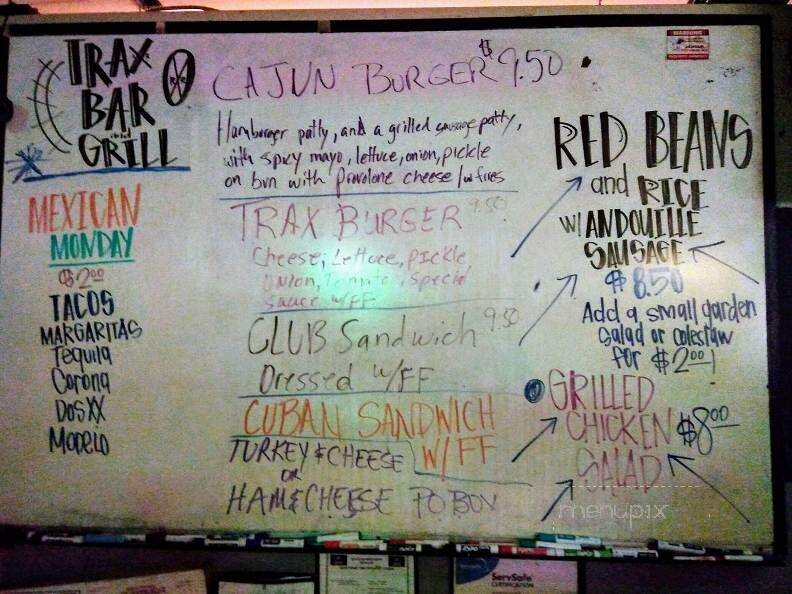 TRAX
BAR
and
GRILL
MEXICAN
MONDAY
$2.00
TACOS
MARGARITAS
Tequila
Corona
DosXX
Modelo
CAJUN BURGER $9.50
Hamburger patty, and a grilled sausage patty,
with spicy mayo, lettuce, onion, pickle
on bun with provolone cheese / w fries
TRAX BURGER 9.50
Cheese, Lettuce, pickle
Onion, Tomato, special
sauce w/FF
CLUB Sandwich 9.50
Dressed w/FF
CUBAN SANDWICH
W/FF
TURKEY & CHEESE
OR
HAM & CHEESE PO BOY
RED BEANS
and RICE
W/ ANDOUILLE
SAUSAGE
$8.50
Add a small garden
Salad or coleslaw
for $2.00
GRILLED
CHICKEN $8.00
SALAD
menupix
WARNING
EXPO
ServSafe
CERTIFICATION